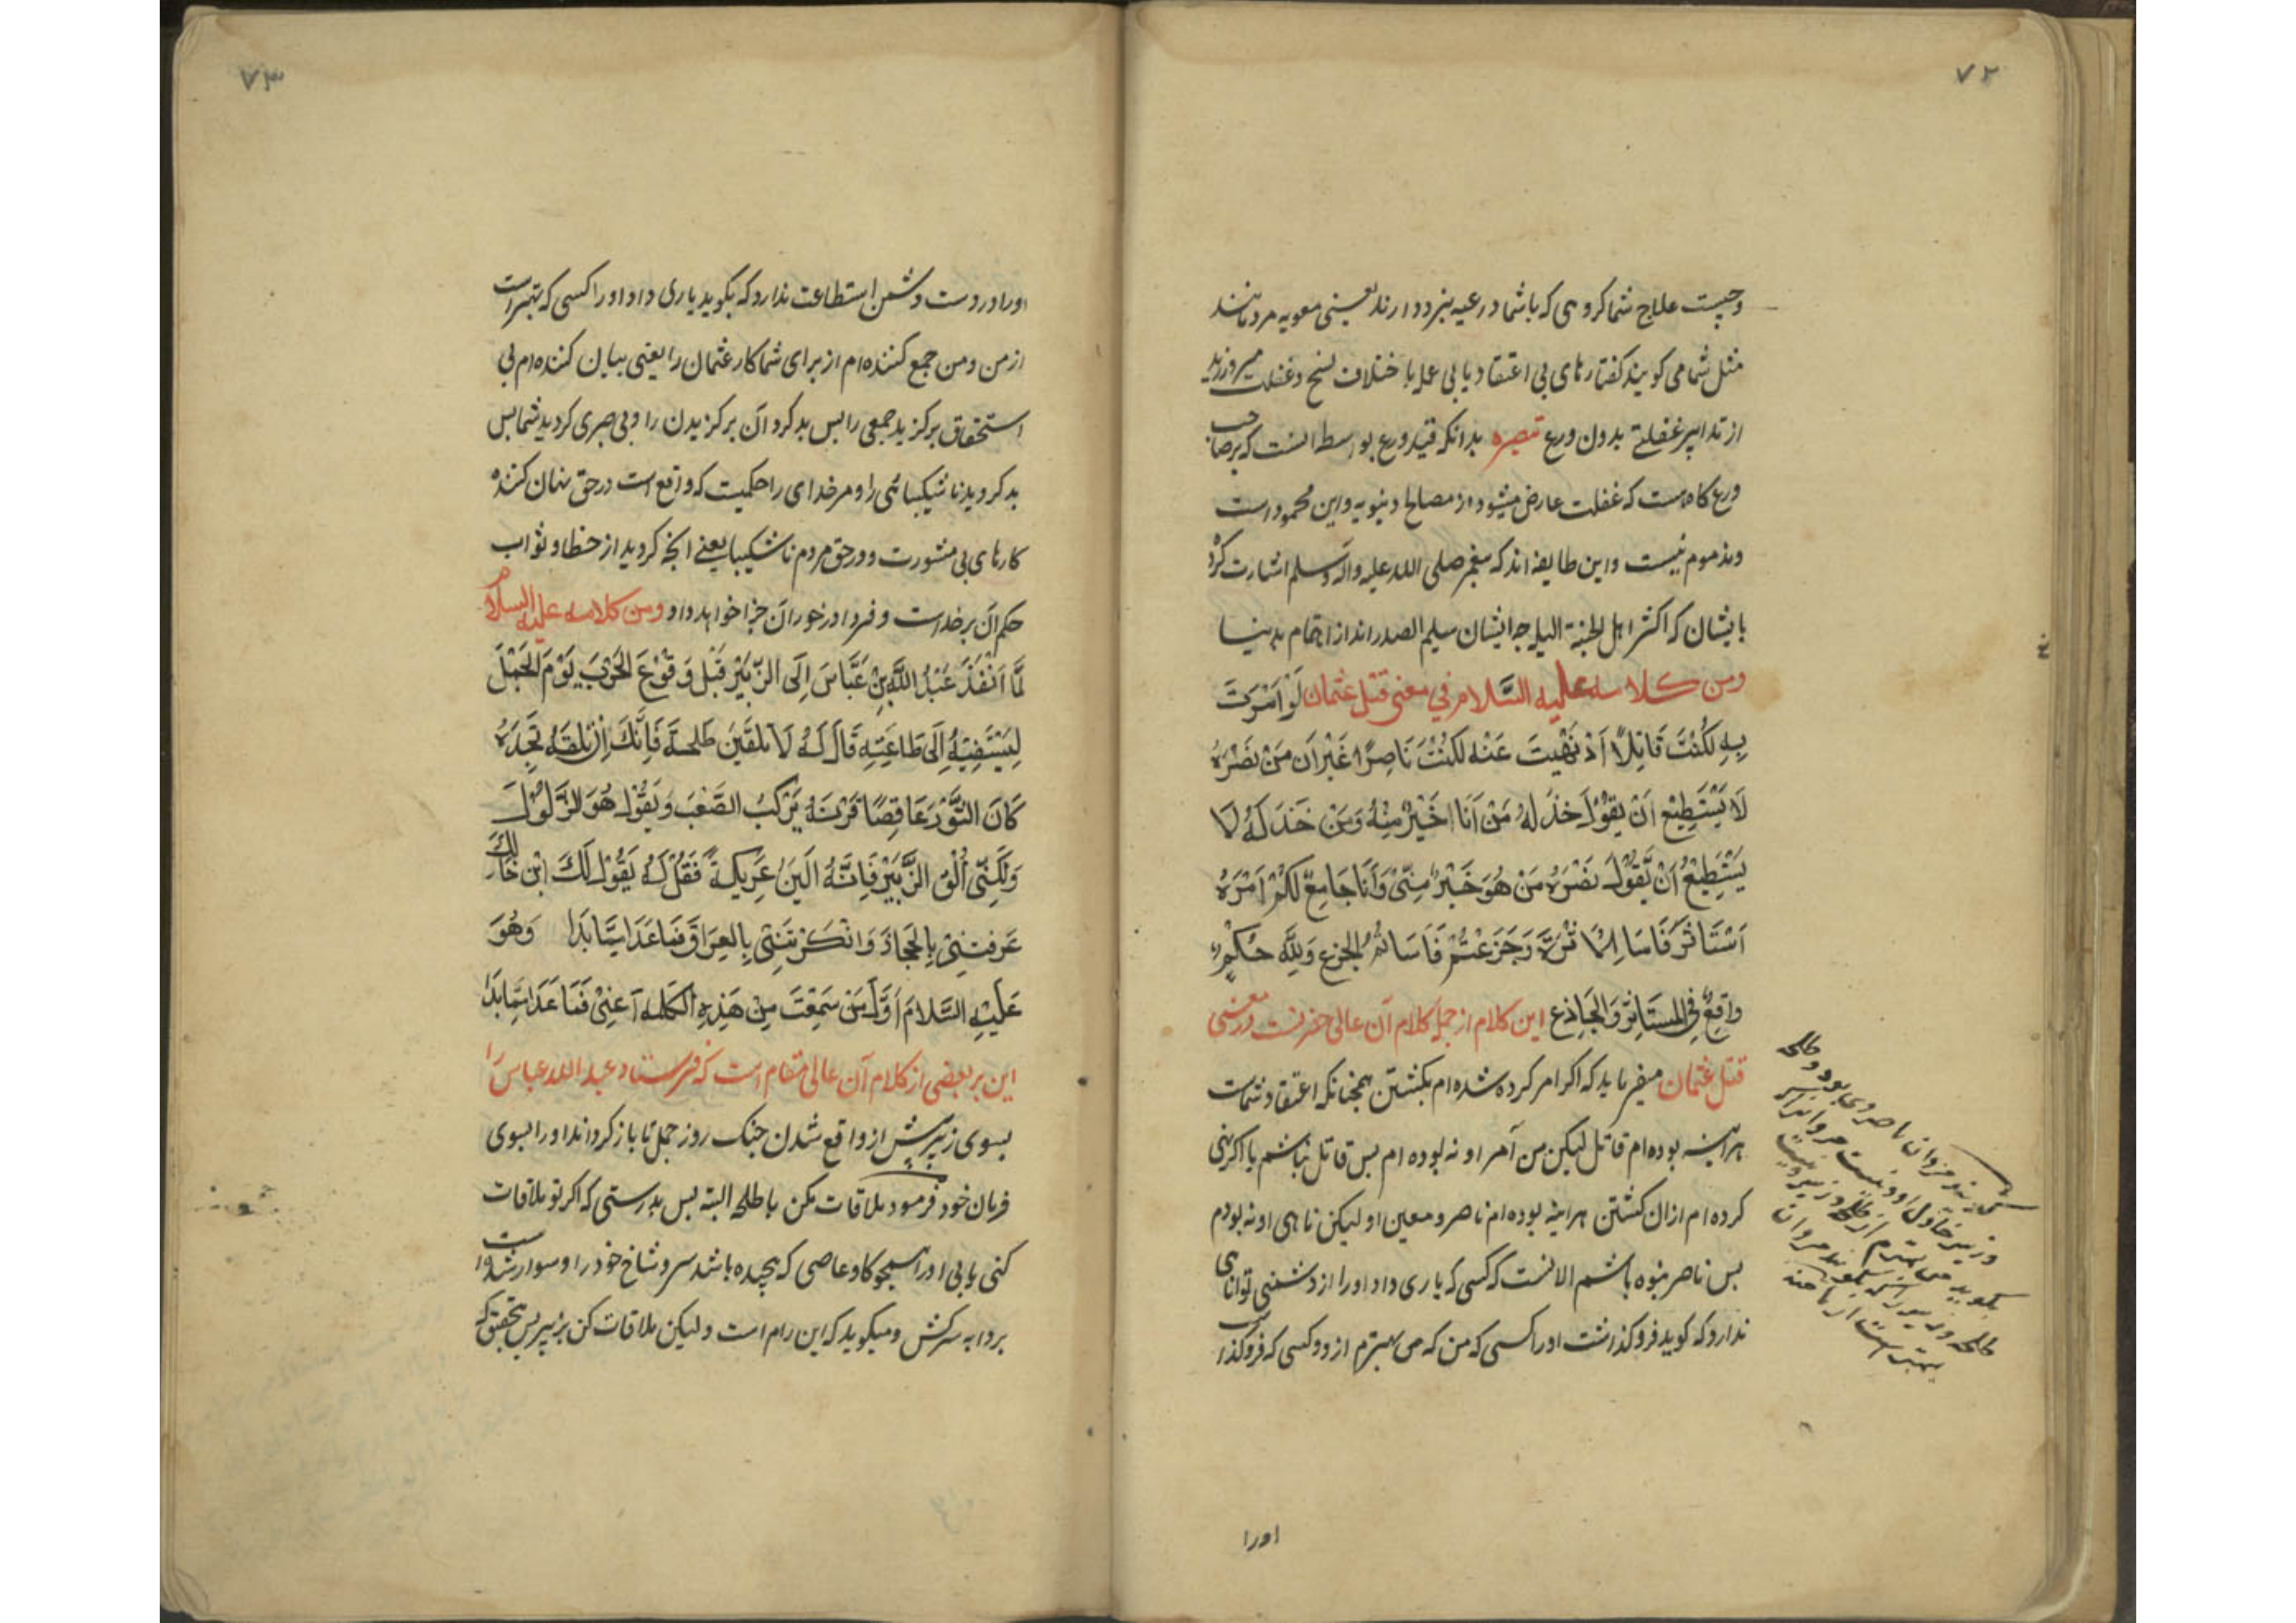 ۷۲
وچیست علاج شما کروهی که باشما در عیبه بنرد دارند یعنی معویه مردمانند
مثل شما می کویند کفتارهای بی اعتقاد یا بی عمل با ختلاف نسخ و غفلت میورزید
از تدابیر غفلتے بدون ورع تبصره بدانکه قید ورع بواسطه انست که بر صاحب
ورع کاه هست که غفلت عارض میشود از مصالح دنیویه و این محمود است
و مذموم نیست و این طایفه اند که پیغمبر صلی الله علیه واله وسلم اشارت کرد
بایشان که اکثر اهل الجنة البله چه ایشان سلیم الصدر اند از اهتمام بدنیا
ومن كلامه عليه السَّلام في معنى قتل عثمان لَوْ اَمَرْتَ
بِهِ لَكُنْتَ قَاتِلًا اَوْ نَهَيْتَ عَنْهُ لَكُنْتُ نَاصِرًا غَيْرَ اَن مَنْ نَصَرَهُ
لَا يَسْتَطِيْع اَنْ يَقُوْلَ خَذَلَهُ مَنْ اَنَا خَيْرٌ مِنْهُ وَمَن خَذَلَهُ لَا
يَسْتَطِيْعُ اَنْ يَّقُوْلَ نَصَرَهُ مَنْ هُوَ خَيْرٌ مِنِّىْ وَاَنَا جَامِعٌ لَكُمْ اَمْرَهُ
اَسْتَاثَرَ فَاسَاءَ الْاَثْرَةَ وَجَزَعْتُمْ فَاَسَاتُمُ الجزع وَلِلَّهِ حُكْمٌ
واقِعٌ فِي المستَاثِرِ وَالجَازِع این کلام از جمله کلام آن عالی حضرتست در معنی
قتل عثمان میفرماید که اکر امر کرده شده ام بکشتن همچنانکه اعتقاد شماست
هراینه بوده ام قاتل لیکن من آمر او نه بوده ام بس قاتل نباشم یا اکر نهی
کرده ام از ان کشتن هراینه بوده ام ناصر و معین او لیکن ناهی او نه بودم
بس ناصر نبوده باشم الا انست که کسی که یاری داد او را از دشمنی توانای
ندارد که کوید فرو کذاشت او را کسی که من که من بهترم از و و کسی که فروکذاشت
اورا
مروان ناصر وی بود و طلحه
و زبیر خاذل او و نیست مروان را کسر
بکوید من بهترم از طلحه و زبیر و نیست
طلحه و زبیر را که بکویند مروان
بهتر است از ما منه
۷۳
او را در دست دشمن استطاعت ندارد که بکوید یاری داد او را کسی که بهتر است
از من و من جمع کننده ام از برای شما کار عثمان را یعنی بیان کننده ام بی
استحقاق برکزید جمعی را بس بد کرد آن برکزیدن را و بی صبری کردید شما بس
بد کردید ناشکیبائی را و مر خدای را حکمیت که واقع است در حق نهان کننده
کارهای بی مشورت و در حق مردم ناشکیبا یعنے انچه کردید از خطا و ثواب
حکم آن بر خداست و فردا در خور ان جزا خواهد داد ومن كلامه عليه السلام
لَمَّا اَنْفَذَ عَبْدُ اللَّهِ بْنِ عَبَّاسَ اِلَى الزُّبَيْرَ قَبْلَ وَقُوْعَ الحَرْبَ يَوْمَ الجَمَلَ
لِيَسْتَفِيْهُ اِلَى طَاعَتِهِ قَالَ لَهُ لَا تلقَيَنَ طَلحةَ فَاِنَّكَ اِنْ تلقَهُ تَجِدَهُ
كَانَ الثَّوْرَ عَاقِصًا قَرْنَهُ يَرْكَبُ الصَّعْبَ وَيَقُوْلُ هُوَ الذَّلُوْلُ
وَلٰكِنَّي اَلْقِ الزُّبَيْرَ فَاِنَّهُ اَليَنُ عَرِيكةً فَقُلْ لَهُ يَقُوْلُ لَكَ ابْن خَالِكَ
عَرَفتَنِىْ بِالحِجَازَ وَانْكَرْتَنِىْ بِالعِرَاقَ فمَاعَدَا مِمَّا بَدَا وَهُوَ
عَلَيْهِ السَّلامَ اَوَّلَ مَنْ سَمِعْتَ مِنْ هَذِهِ الكلمه اَعنِىْ فَمَاعَدَا مِمَّا بَدَا
این بر بعضی از کلام آن عالی مقام است که فرستاد عبد الله عباس را
بسوی زبیر پیش از واقع شدن جنک روز جمل تا باز کرداند او را بسوی
فرمان خود فرمود ملاقات مکن با طلحه البته بس بدرستی که اکر تو ملاقات
کنی یابی او را همچو کاو عاصی که پیچیده باشد سرو شاخ خود را و سوار شده است
بر دابه سرکش و میکوید که این رام است و لیکن ملاقات کن بزبیر بس بتحقیق که